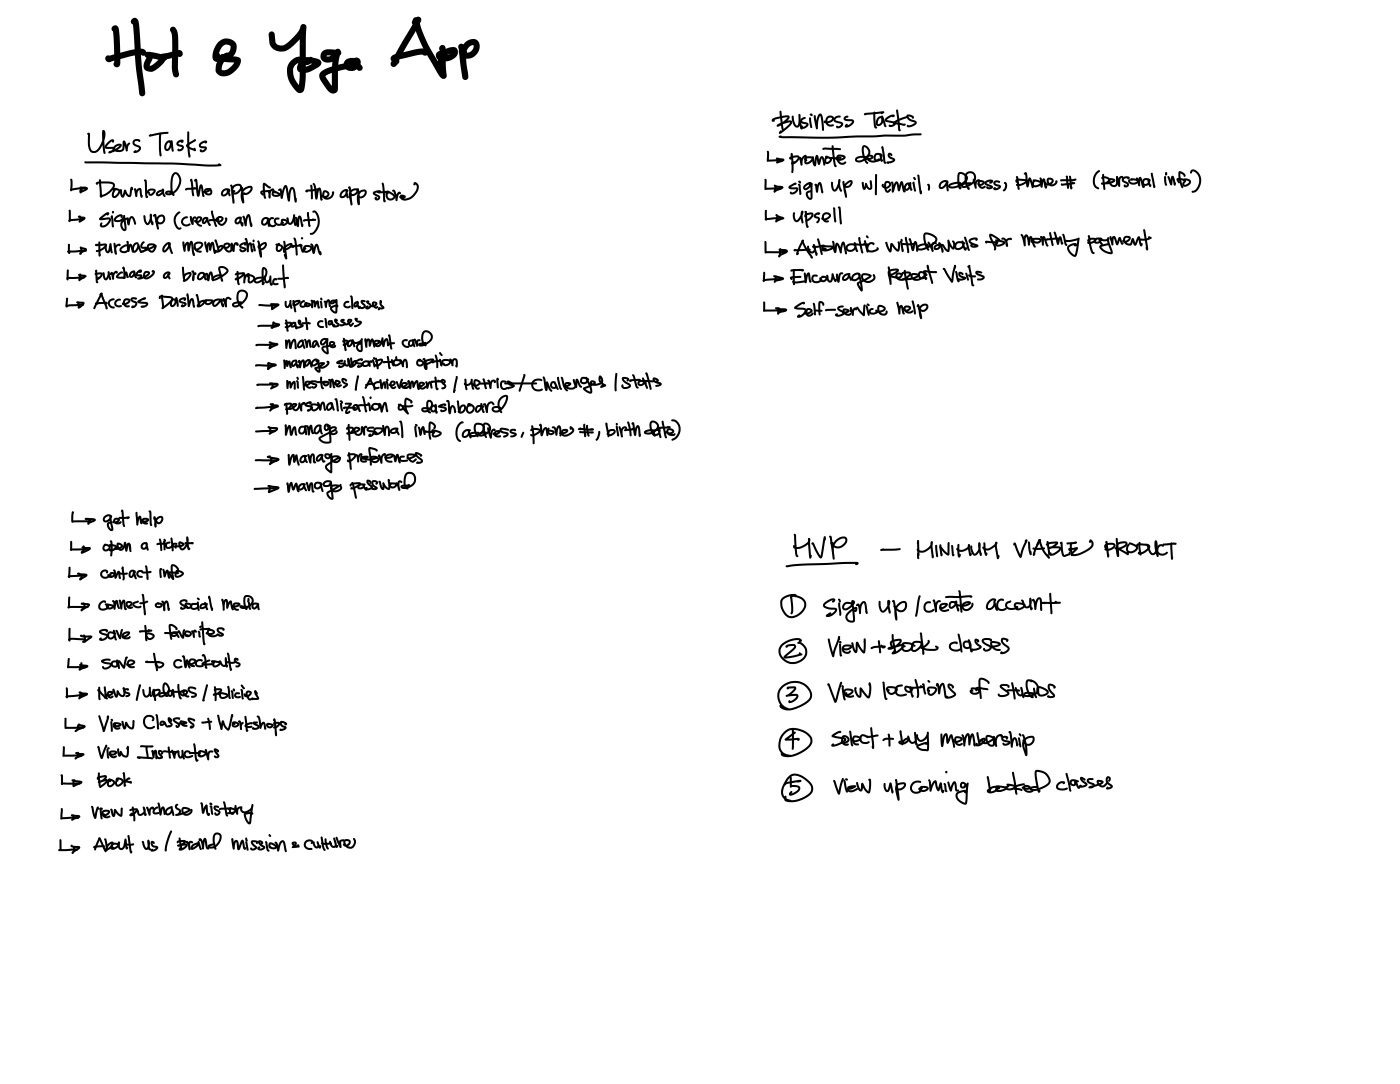 Hot 8 Yoga App
Users Tasks
↳ Download the app from the app store
↳ Sign up (create an account)
↳ purchase a membership option
↳ purchase a brand product
↳ Access Dashboard → upcoming classes
→ past classes
→ manage payment card
→ manage subscription option
→ milestones / Achievements / Metrics / Challenges / Stats
→ personalization of dashboard
→ manage personal info (address, phone #, birth date)
→ manage preferences
→ manage password
↳ get help
↳ open a ticket
↳ contact info
↳ connect on social media
↳ save to favorites
↳ save to checkouts
↳ News / updates / Policies
↳ View Classes + Workshops
↳ View Instructors
↳ Book
↳ View purchase history
↳ About us / Brand mission & culture
Business Tasks
↳ promote deals
↳ sign up w/ email, address, phone # (personal info)
↳ upsell
↳ Automatic withdrawals for monthly payment
↳ Encourage Repeat Visits
↳ Self-service help
MVP — MINIMUM VIABLE PRODUCT
① Sign up / create account
② View + Book classes
③ View locations of studios
④ Select + buy membership
⑤ View upcoming booked classes